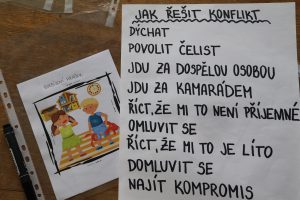 JAK ŘEŠIT KONFLIKT
DÝCHAT
POVOLIT ČELIST
JDU ZA DOSPĚLOU OSOBOU
JDU ZA KAMARÁDEM
ŘÍCT, ŽE MI TO NENÍ PŘÍJEMNÉ
OMLUVIT SE
ŘÍCT, ŽE MI TO JE LÍTO
DOMLUVIT SE
NAJÍT KOMPROMIS